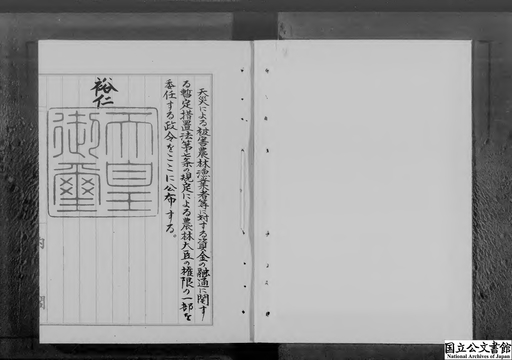 天災による被害農林漁業者等に対する資金の融通に関す
る暫定措置法第七条の規定による農林大臣の権限の一部を
委任する政令をここに公布する。
裕仁
天皇御璽
国立公文書館
National Archives of Japan